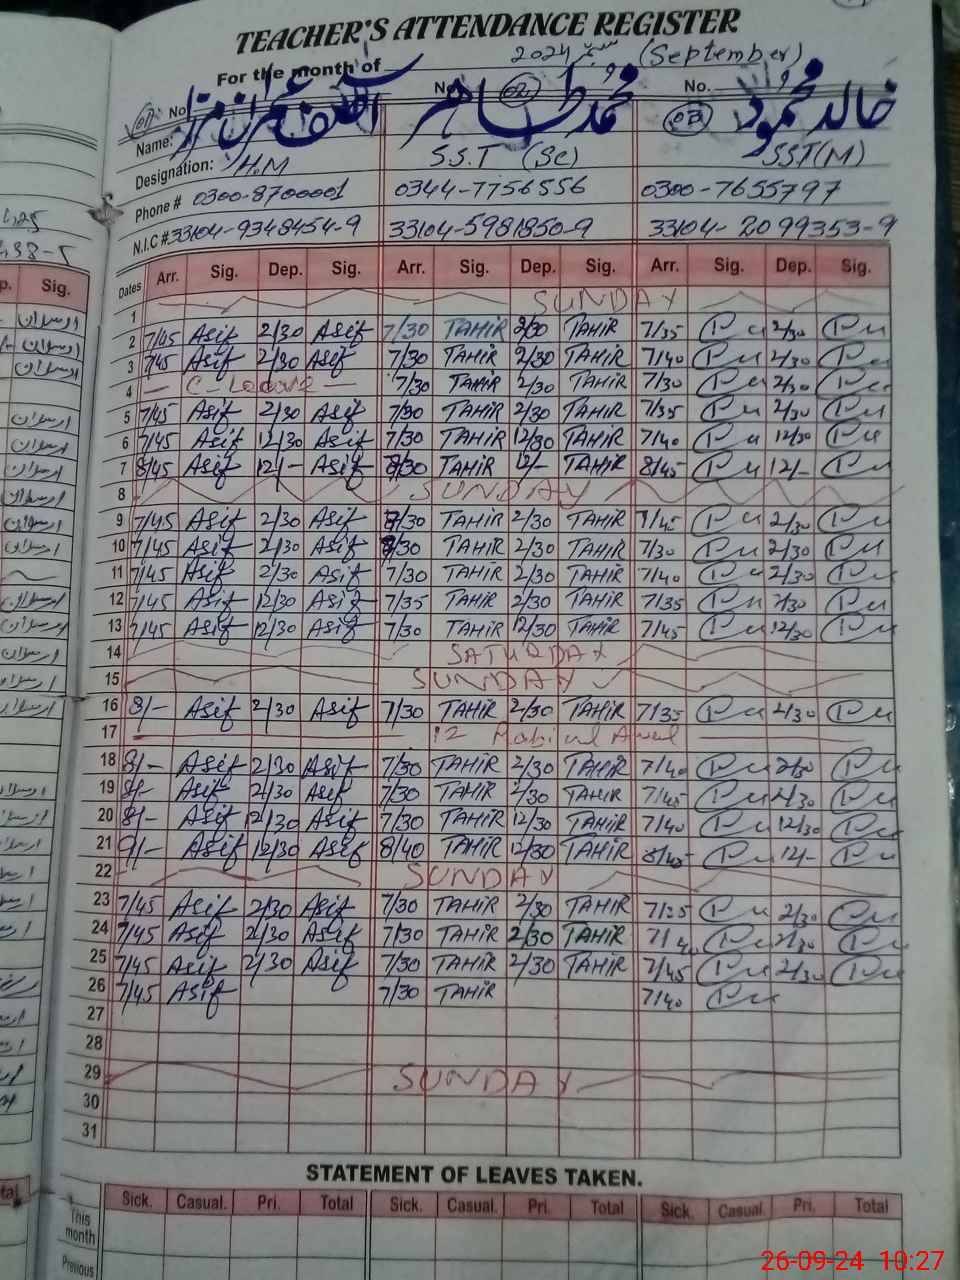 TEACHER'S ATTENDANCE REGISTER
For the month of 2024 ستمبر (September)
No. 01 No. 02 No. 03
Name: محمد طاہر خالد محمود
Designation: H.M S.S.T (Sc) SST(M)
Phone # 0300-8700001 0344-7756556 0300-7655797
N.I.C # 33104-9348454-9 33104-5981850-9 33104-2099353-9
Dates Arr. Sig. Dep. Sig. Arr. Sig. Dep. Sig. Arr. Sig. Dep. Sig.
1 SUNDAY
2 7/45 Asif 2/30 Asif 7/30 TAHIR 2/30 TAHIR 7/35 2/30
3 7/45 Asif 2/30 Asif 7/30 TAHIR 2/30 TAHIR 7/40 2/30
4 C Leave 7/30 TAHIR 2/30 TAHIR 7/30 2/30
5 7/45 Asif 2/30 Asif 7/30 TAHIR 2/30 TAHIR 7/35 2/30
6 7/45 Asif 12/30 Asif 7/30 TAHIR 12/30 TAHIR 7/40 12/30
7 8/45 Asif 12/- Asif 8/30 TAHIR 12/- TAHIR 8/45 12/-
8 SUNDAY
9 7/45 Asif 2/30 Asif 7/30 TAHIR 2/30 TAHIR 7/45 2/30
10 7/45 Asif 2/30 Asif 7/30 TAHIR 2/30 TAHIR 7/30 2/30
11 7/45 Asif 2/30 Asif 7/30 TAHIR 2/30 TAHIR 7/40 2/30
12 7/45 Asif 12/30 Asif 7/35 TAHIR 2/30 TAHIR 7/35 2/30
13 7/45 Asif 12/30 Asif 7/30 TAHIR 12/30 TAHIR 7/45 12/30
14 SATURDAY
15 SUNDAY
16 8/- Asif 2/30 Asif 7/30 TAHIR 2/30 TAHIR 7/35 2/30
17 12 Rabiul Awal
18 8/- Asif 2/30 Asif 7/30 TAHIR 2/30 TAHIR 7/40 2/30
19 8/- Asif 2/30 Asif 7/30 TAHIR 2/30 TAHIR 7/45 2/30
20 8/- Asif 12/30 Asif 7/30 TAHIR 12/30 TAHIR 7/40 12/30
21 9/- Asif 12/30 Asif 8/40 TAHIR 12/30 TAHIR 8/45 12/-
22 SUNDAY
23 7/45 Asif 2/30 Asif 7/30 TAHIR 2/30 TAHIR 7/25 2/30
24 7/45 Asif 2/30 Asif 7/30 TAHIR 2/30 TAHIR 7/40 2/30
25 7/45 Asif 2/30 Asif 7/30 TAHIR 2/30 TAHIR 7/45 2/30
26 7/45 Asif 7/30 TAHIR 7/40
27
28
29 SUNDAY
30
31
STATEMENT OF LEAVES TAKEN.
Sick. Casual. Pri. Total Sick. Casual. Pri. Total Sick. Casual. Pri. Total
This month
Previous
26-09-24 10:27